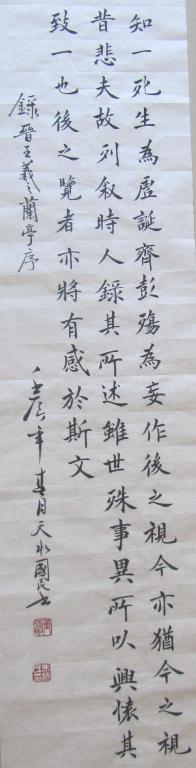 知一死生為虛誕齊彭殤為妄作後之視今亦猶今之視
昔悲夫故列叙時人錄其所述雖世殊事異所以興懷其
致一也後之覽者亦將有感於斯文
錄晉王羲之蘭亭序
壬辰年春月天水國民书